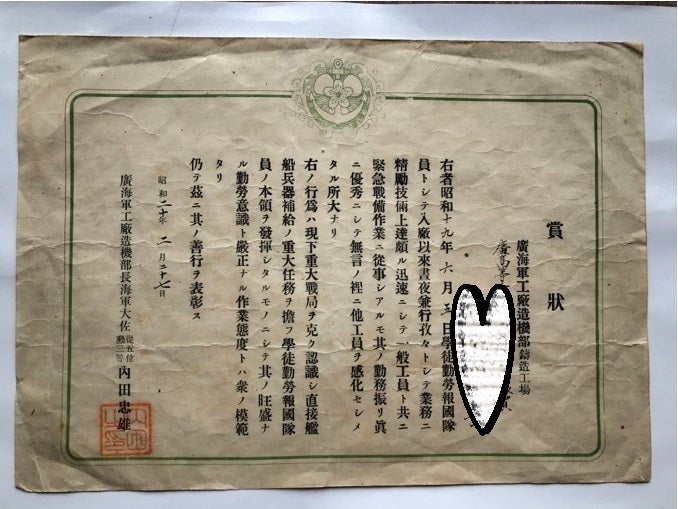 賞狀
廣海軍工廠造機部鑄造工場
右者昭和十九年六月三日學徒勤勞報國隊
員トシテ入廠以來晝夜兼行孜々トシテ業務ニ
精勵技倆上達頗ル迅速ニシテ一般工員ト共ニ
緊急戰備作業ニ從事シアルモ其ノ勤務振リ眞
ニ優秀ニシテ無言ノ裡ニ他工員ヲ感化セシメ
タル所大ナリ
右ノ行爲ハ現下重大戰局ヲ克ク認識シ直接艦
船兵器補給ノ重大任務ヲ擔フ學徒勤勞報國隊
員ノ本領ヲ發揮シタルモノニシテ其ノ旺盛ナ
ル勤勞意識ト嚴正ナル作業態度トハ衆ノ模範
タリ
仍テ茲ニ其ノ善行ヲ表彰ス
昭和二十年二月二十七日
廣海軍工廠造機部長海軍大佐從五位勳三等內田忠雄